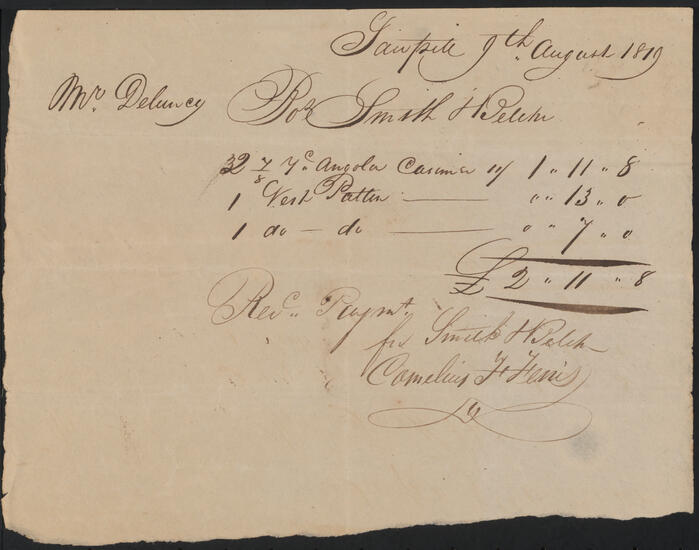 Sawpitt 9th August 1819
Mr. Delancey Bot Smith & Belcher
2 7/8 Yds Angola Casimer 11/ 1 " 11 " 8
1 Vest Pattern —— " " 13 " 0
1 do — do —— " " 7 " 0
£ 2 " 11 " 8
Recd. Paymt.
for Smith & Belcher
Cornelius F Ferris